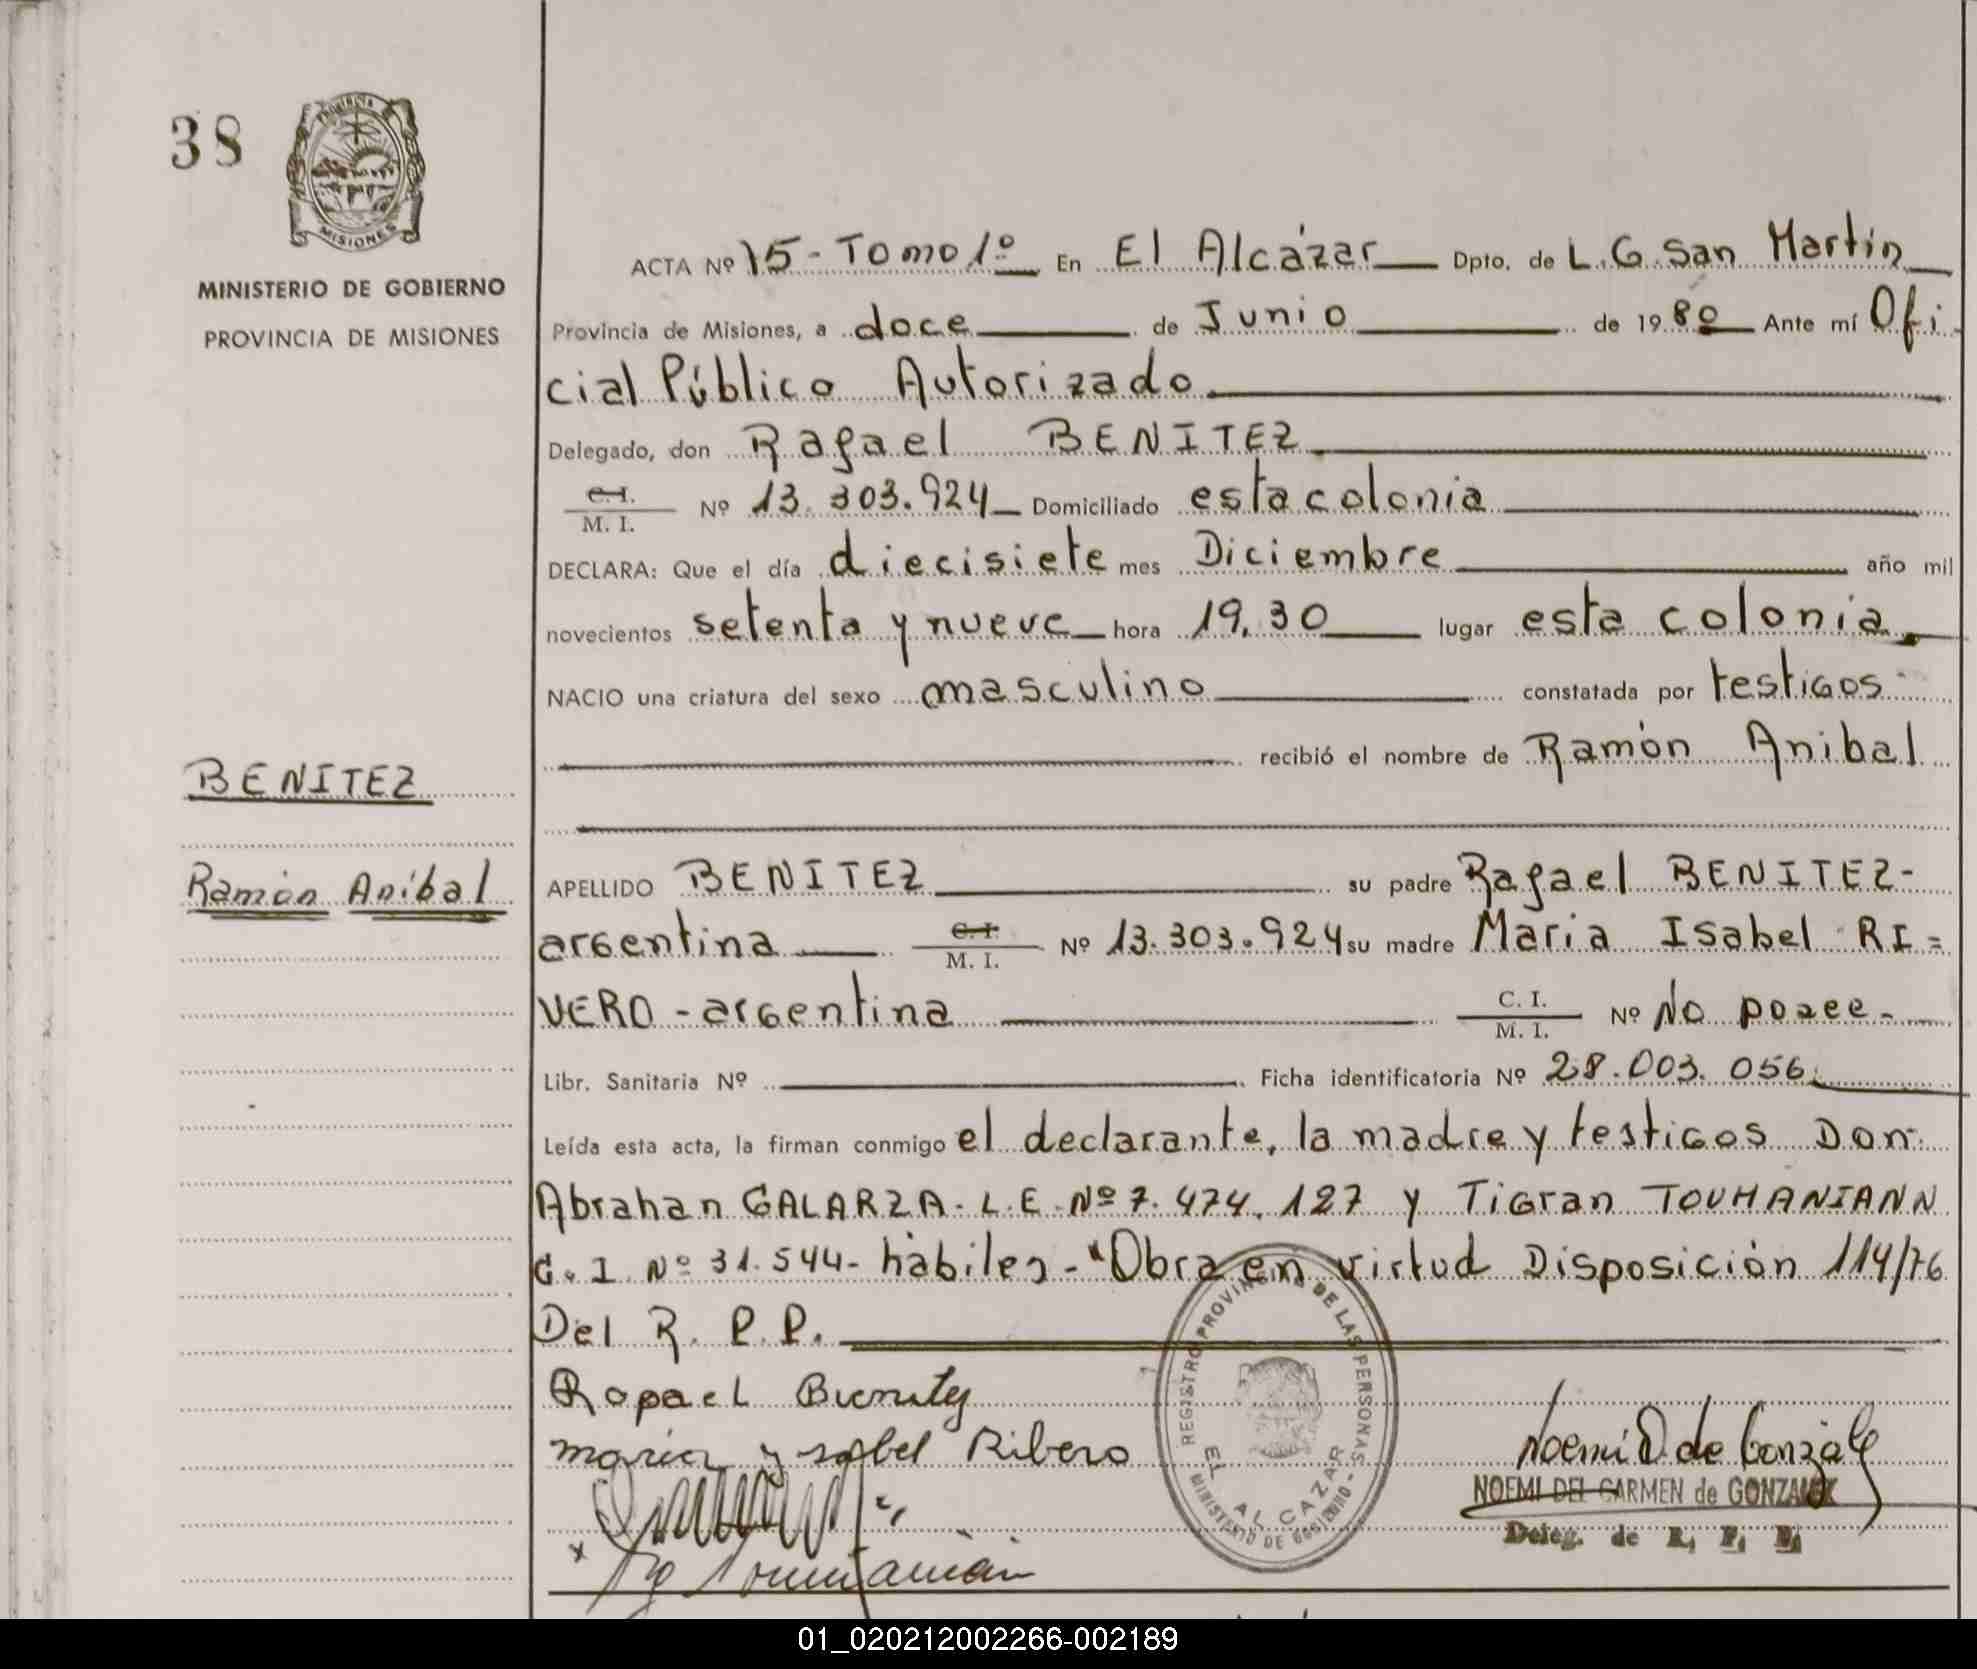 38
Provincia
MISIONES
MINISTERIO DE GOBIERNO
PROVINCIA DE MISIONES
BENITEZ
Ramón Aníbal
ACTA Nº 15 - Tomo 1º En El Alcázar Dpto. de L. G. San Martín
Provincia de Misiones, a doce de Junio de 1980 Ante mí Ofi
cial Público Autorizado
Delegado, don Rafael BENITEZ
C. I. / M. I. Nº 13.303.924 Domiciliado esta colonia
DECLARA: Que el día diecisiete mes Diciembre año mil
novecientos setenta y nueve hora 19,30 lugar esta colonia
NACIO una criatura del sexo masculino constatada por testigos
recibió el nombre de Ramón Anibal
APELLIDO BENITEZ su padre Rafael BENITEZ-
argentina C. I. / M. I. Nº 13.303.924 su madre Maria Isabel RI=
VERO - argentina C. I. / M. I. Nº No posee-
Libr. Sanitaria Nº Ficha identificatoria Nº 28.003.056
Leída esta acta, la firman conmigo el declarante, la madre y testigos Don
Abrahan GALARZA. L.E. Nº 7.474.127 y Tigran TOUMANIANN
C. I. Nº 31.544- hábiles - "Obra en virtud Disposición 114/76
Del R. P. P.
Ropael Bienitez
maria ysabel Ribero
REGISTRO PROVINCIAL DE LAS PERSONAS - MINISTERIO DE GOBIERNO -
EL ALCAZAR
Noemi D. de Gonzalez
NOEMI DEL CARMEN de GONZALEZ
Deleg. de R. P. P.
01_020212002266-002189